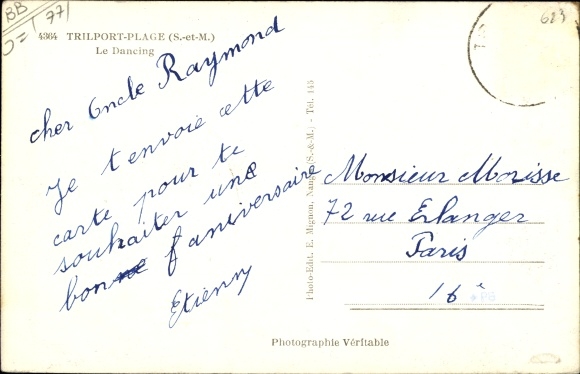 BB
77
4364 TRILPORT-PLAGE (S.-et-M.)
Le Dancing
623
cher Oncle Raymond
Je t'envoie cette
carte pour te
souhaiter une
bonne f aniversaire
Etienny
Photo-Edit. E. Mignon, Nangis (S.-&-M.) - Tél. 145
Monsieur Morisse
72 rue Erlanger
Paris
16è
Photographie Véritable